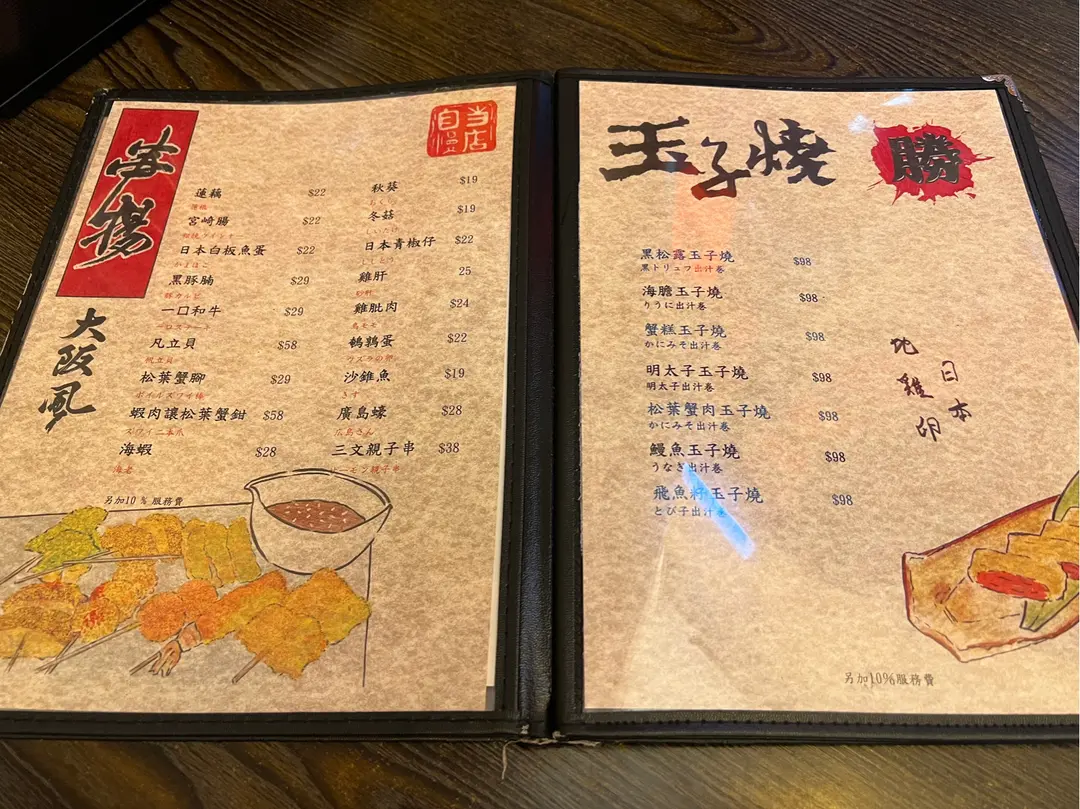 串揚
大阪風
当店自慢
蓮藕 $22
宮崎腸 $22
日本白板魚蛋 $22
かまぼこ
黑豚腩 $29
豚カルビ
一口和牛 $29
凡立貝 $58
帆立貝
松葉蟹腳 $29
ボイルズワイ棒
蝦肉讓松葉蟹鉗 $58
海蝦 $28
海老
秋葵 $19
おくら
冬菇 $19
しいたけ
日本青椒仔 $22
ししとう
雞肝 25
雞肶肉 $24
鳥もも
鵪鶉蛋 $22
ウズラの卵
沙錐魚 $19
きす
廣島蠔 $28
三文親子串 $38
サーモン親子串
另加10%服務費
玉子燒
勝
黑松露玉子燒 $98
黒トリュフ出汁巻
海膽玉子燒 $98
りうに出汁巻
蟹糕玉子燒 $98
かにみそ出汁巻
明太子玉子燒 $98
明太子出汁巻
松葉蟹肉玉子燒 $98
かにみそ出汁巻
鰻魚玉子燒 $98
うなぎ出汁巻
飛魚籽玉子燒 $98
とび子出汁巻
日本
地雞卵
另加10%服務費